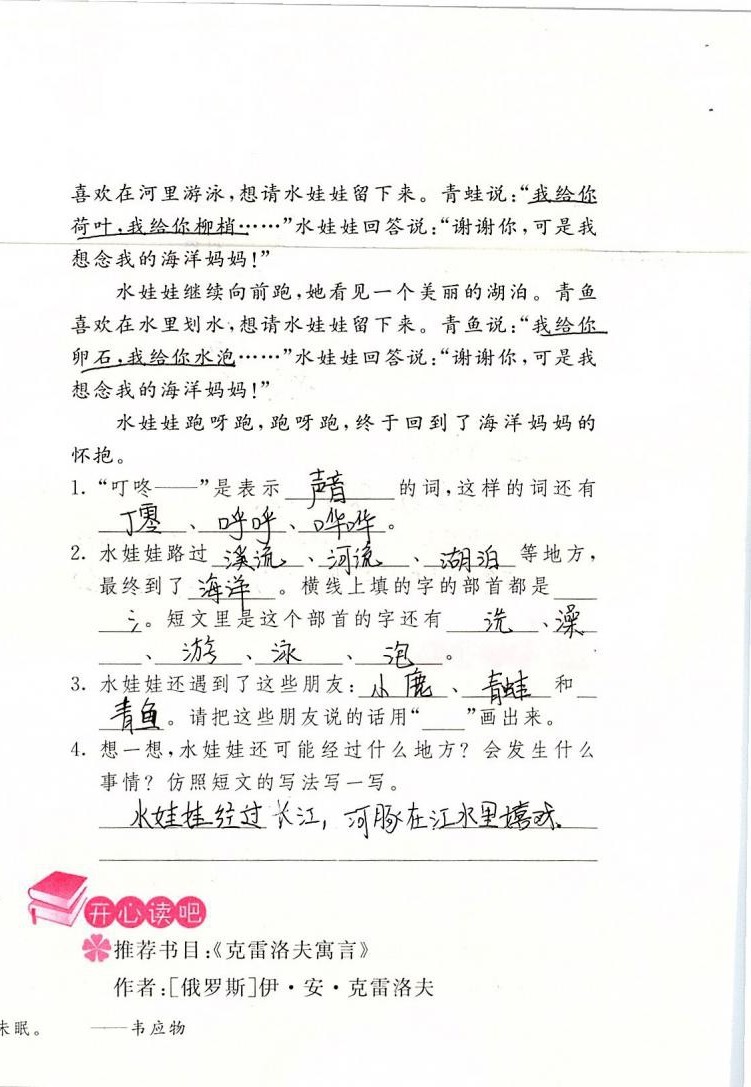 喜欢在河里游泳,想请水娃娃留下来。青蛙说:“我给你
荷叶,我给你柳梢……”水娃娃回答说:“谢谢你,可是我
想念我的海洋妈妈!”
水娃娃继续向前跑,她看见一个美丽的湖泊。青鱼
喜欢在水里划水,想请水娃娃留下来。青鱼说:“我给你
卵石,我给你水泡……”水娃娃回答说:“谢谢你,可是我
想念我的海洋妈妈!”
水娃娃跑呀跑,跑呀跑,终于回到了海洋妈妈的
怀抱。
1. “叮咚——”是表示 声音 的词,这样的词还有
丁零、呼呼、哗哗。
2. 水娃娃路过 溪流、河流、湖泊 等地方,
最终到了 海洋 。横线上填的字的部首都是
氵。短文里是这个部首的字还有 洗、澡
、游、泳、泡。
3. 水娃娃还遇到了这些朋友:小鹿、青蛙 和
青鱼。请把这些朋友说的话用“___”画出来。
4. 想一想,水娃娃还可能经过什么地方?会发生什么
事情?仿照短文的写法写一写。
水娃娃经过长江,河豚在江水里嬉戏.
开心读吧
推荐书目:《克雷洛夫寓言》
作者:[俄罗斯]伊·安·克雷洛夫
未眠。 ——韦应物